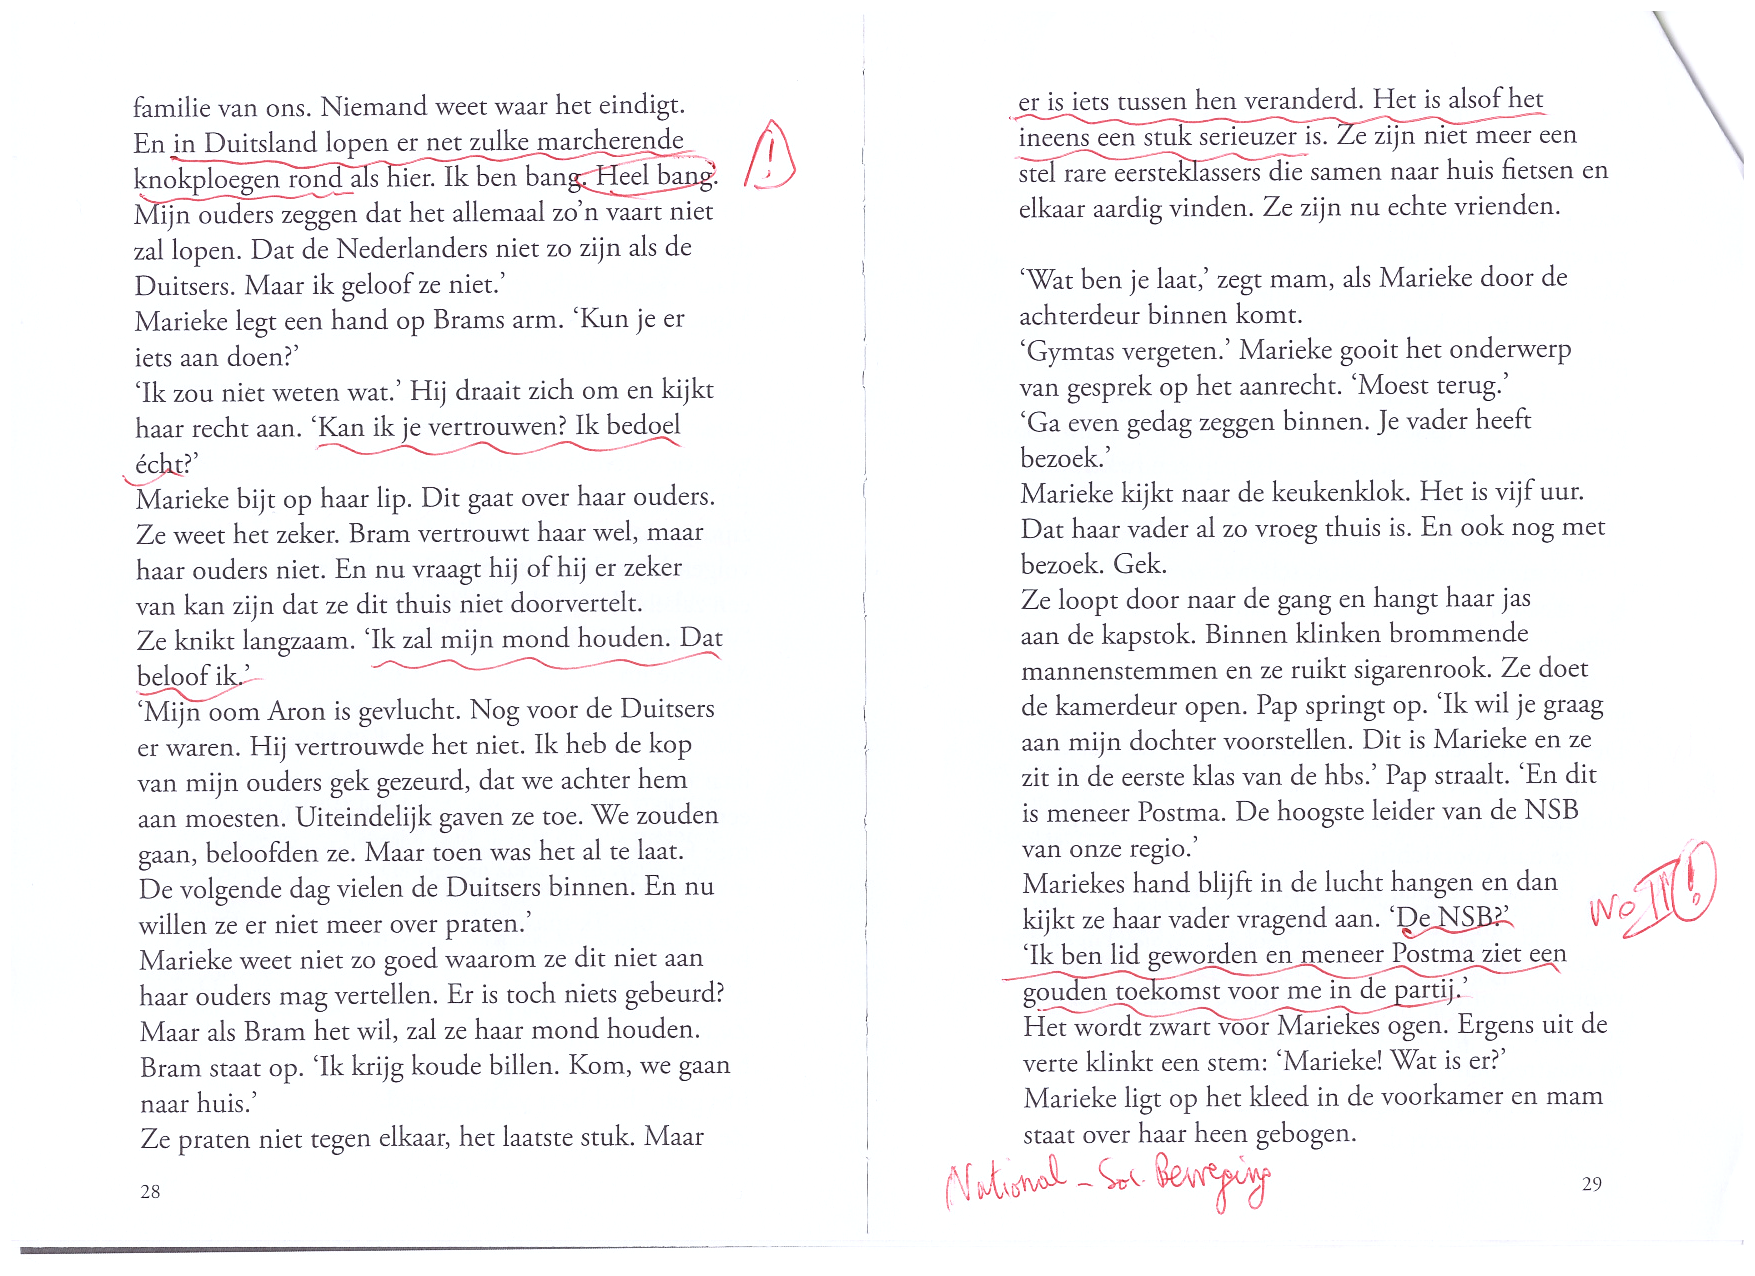 familie van ons. Niemand weet waar het eindigt.
En in Duitsland lopen er net zulke marcherende
knokploegen rond als hier. Ik ben bang. Heel bang.
!
Mijn ouders zeggen dat het allemaal zo’n vaart niet
zal lopen. Dat de Nederlanders niet zo zijn als de
Duitsers. Maar ik geloof ze niet.’
Marieke legt een hand op Brams arm. ‘Kun je er
iets aan doen?’
‘Ik zou niet weten wat.’ Hij draait zich om en kijkt
haar recht aan. ‘Kan ik je vertrouwen? Ik bedoel
écht?’
Marieke bijt op haar lip. Dit gaat over haar ouders.
Ze weet het zeker. Bram vertrouwt haar wel, maar
haar ouders niet. En nu vraagt hij of hij er zeker
van kan zijn dat ze dit thuis niet doorvertelt.
Ze knikt langzaam. ‘Ik zal mijn mond houden. Dat
beloof ik.’
‘Mijn oom Aron is gevlucht. Nog voor de Duitsers
er waren. Hij vertrouwde het niet. Ik heb de kop
van mijn ouders gek gezeurd, dat we achter hem
aan moesten. Uiteindelijk gaven ze toe. We zouden
gaan, beloofden ze. Maar toen was het al te laat.
De volgende dag vielen de Duitsers binnen. En nu
willen ze er niet meer over praten.’
Marieke weet niet zo goed waarom ze dit niet aan
haar ouders mag vertellen. Er is toch niets gebeurd?
Maar als Bram het wil, zal ze haar mond houden.
Bram staat op. ‘Ik krijg koude billen. Kom, we gaan
naar huis.’
Ze praten niet tegen elkaar, het laatste stuk. Maar
28
er is iets tussen hen veranderd. Het is alsof het
ineens een stuk serieuzer is. Ze zijn niet meer een
stel rare eersteklassers die samen naar huis fietsen en
elkaar aardig vinden. Ze zijn nu echte vrienden.
‘Wat ben je laat,’ zegt mam, als Marieke door de
achterdeur binnen komt.
‘Gymtas vergeten.’ Marieke gooit het onderwerp
van gesprek op het aanrecht. ‘Moest terug.’
‘Ga even gedag zeggen binnen. Je vader heeft
bezoek.’
Marieke kijkt naar de keukenklok. Het is vijf uur.
Dat haar vader al zo vroeg thuis is. En ook nog met
bezoek. Gek.
Ze loopt door naar de gang en hangt haar jas
aan de kapstok. Binnen klinken brommende
mannenstemmen en ze ruikt sigarenrook. Ze doet
de kamerdeur open. Pap springt op. ‘Ik wil je graag
aan mijn dochter voorstellen. Dit is Marieke en ze
zit in de eerste klas van de hbs.’ Pap straalt. ‘En dit
is meneer Postma. De hoogste leider van de NSB
van onze regio.’
Mariekes hand blijft in de lucht hangen en dan
kijkt ze haar vader vragend aan. ‘De NSB?’
WO II !
‘Ik ben lid geworden en meneer Postma ziet een
gouden toekomst voor me in de partij.’
Het wordt zwart voor Mariekes ogen. Ergens uit de
verte klinkt een stem: ‘Marieke! Wat is er?’
Marieke ligt op het kleed in de voorkamer en mam
staat over haar heen gebogen.
National - Soc. Beweging
29